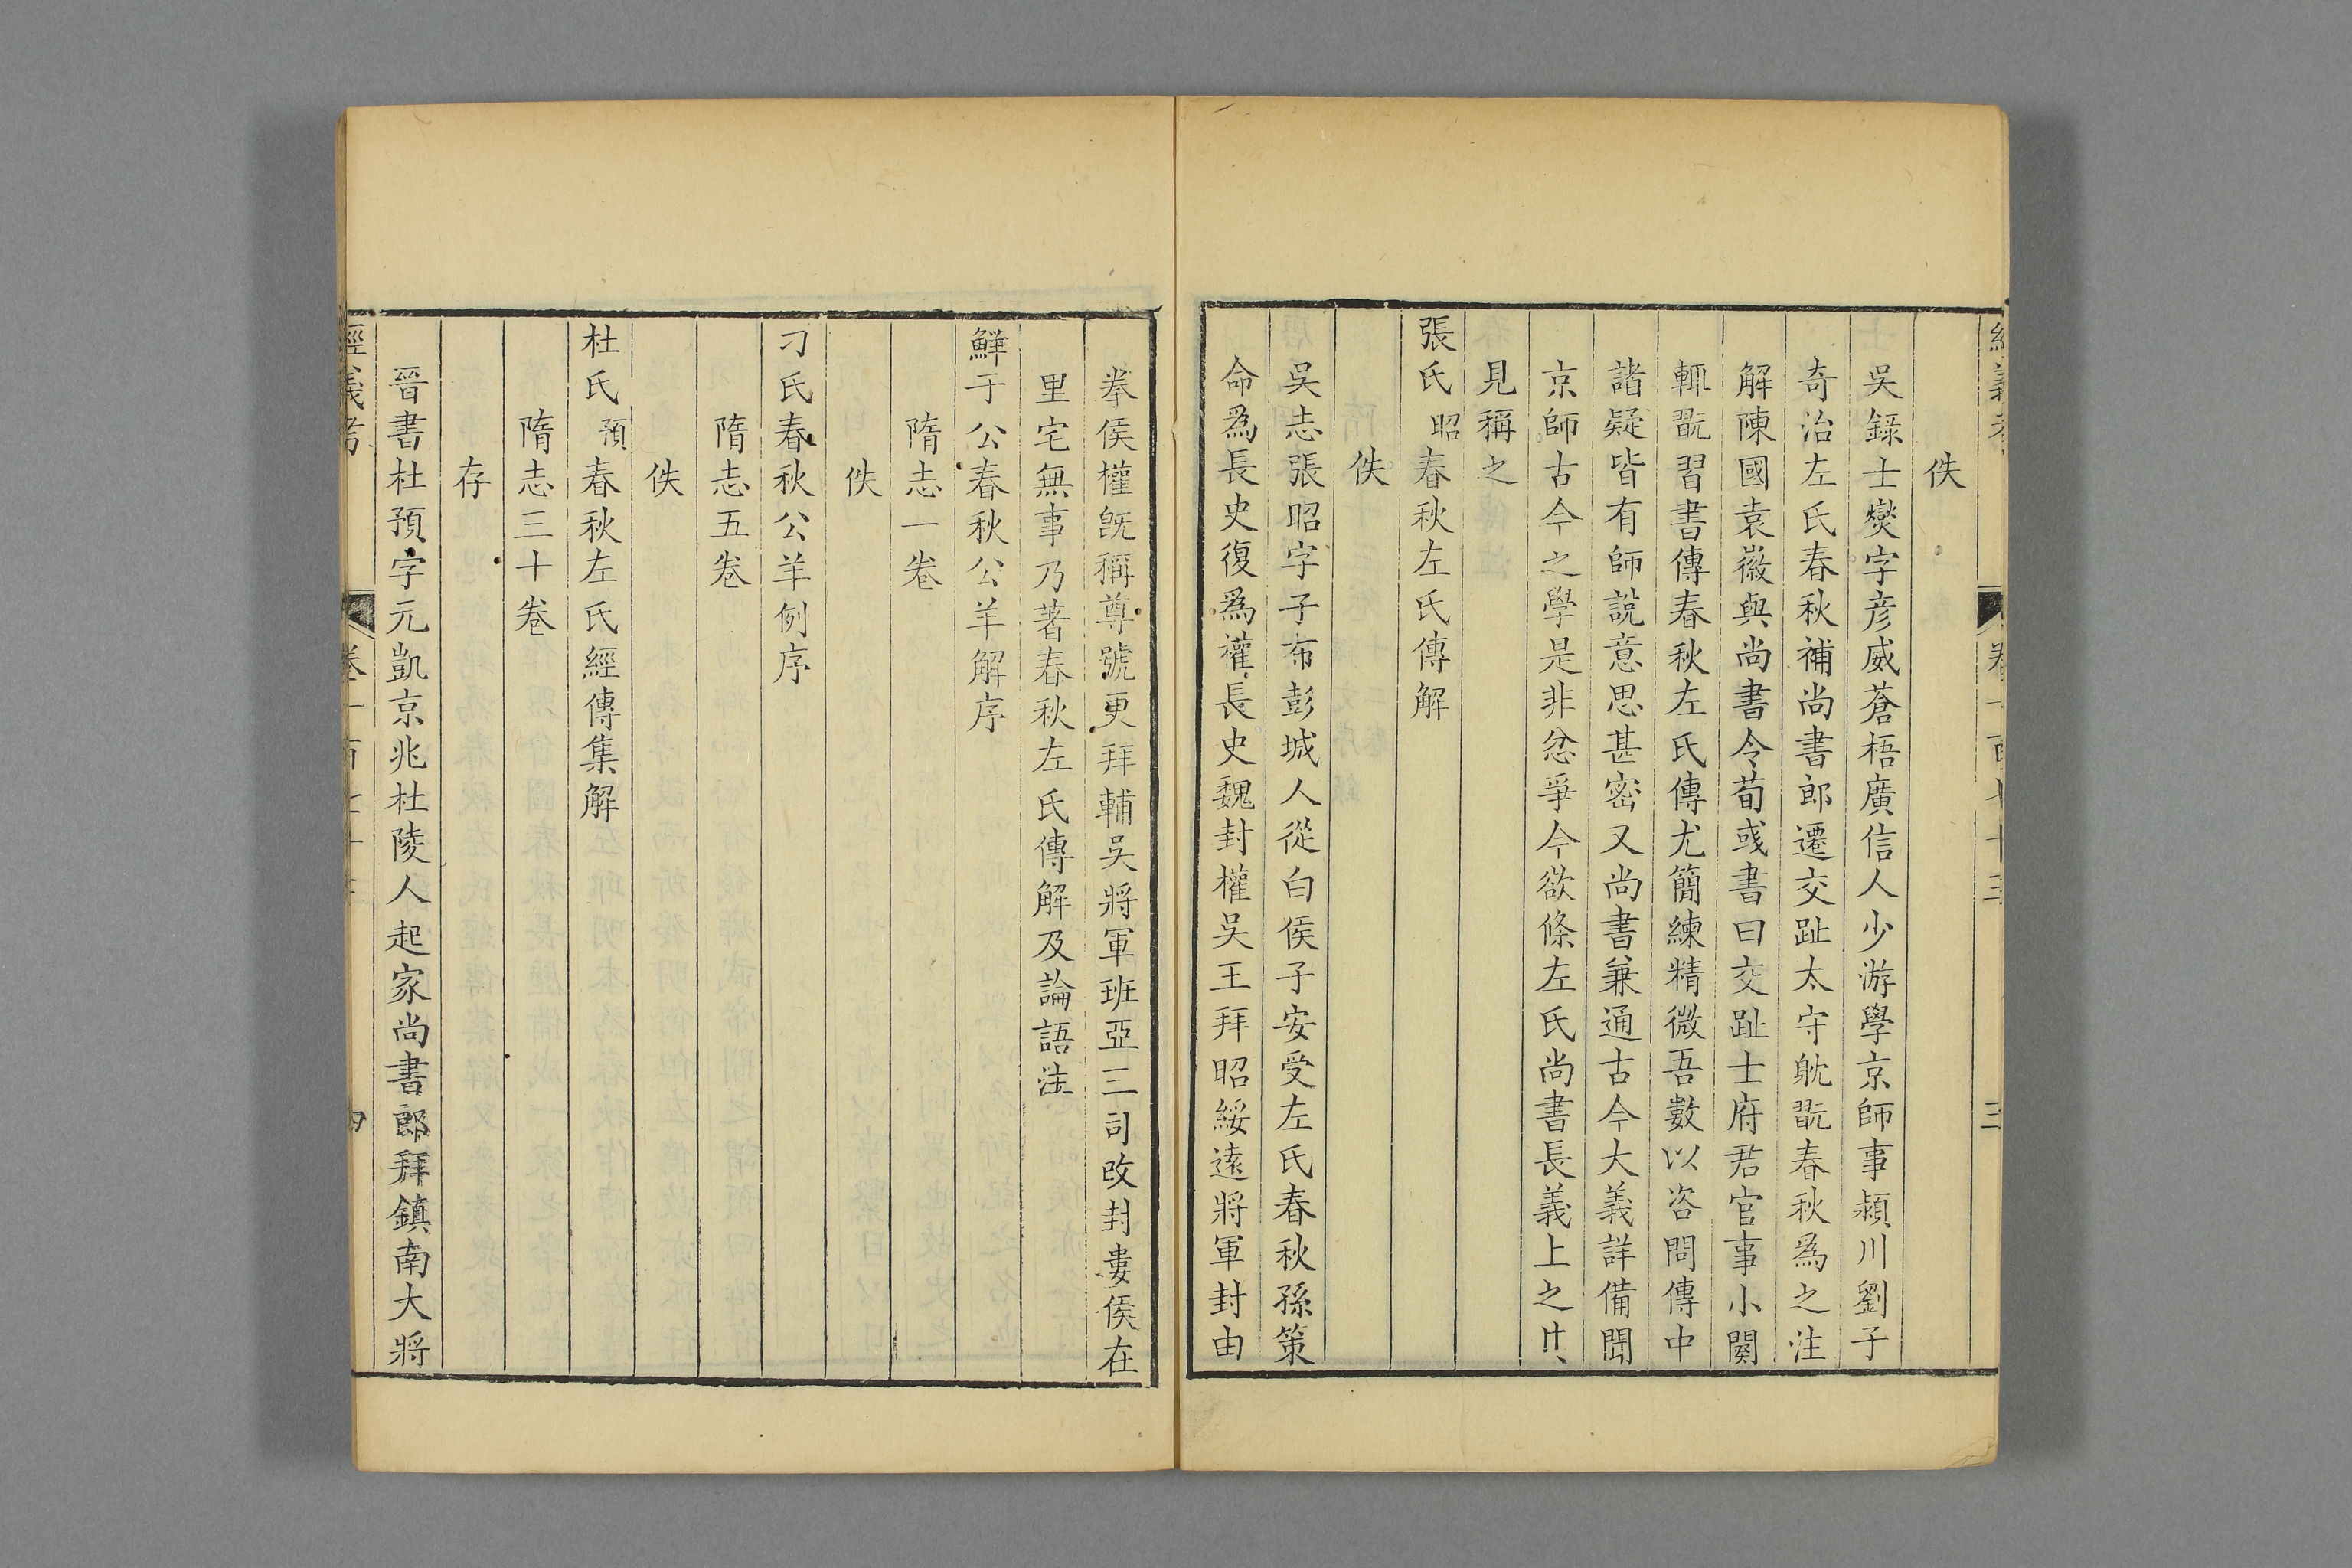 經義考 卷一百七十三 三
佚
吳錄士燮字彦威蒼梧廣信人少游學京師事潁川劉子
奇治左氏春秋補尚書郎遷交趾太守躭翫春秋爲之注
解陳國袁徽與尚書令荀彧書曰交趾士府君官事小闋
輒翫習書傳春秋左氏傳尤簡練精微吾數以咨問傳中
諸疑皆有師說意思甚密又尚書兼通古今大義詳備聞
京師古今之學是非忿爭今欲條左氏尚書長義上之其
見稱之
張氏昭春秋左氏傳解
佚
吳志張昭字子布彭城人從白侯子安受左氏春秋孫策
命爲長史復爲權長史魏封權吳王拜昭綏遠將軍封由
拳侯權旣稱尊號更拜輔吳將軍班亞三司改封婁侯在
里宅無事乃著春秋左氏傳解及論語注
鮮于公春秋公羊解序
隋志一卷
佚
刁氏春秋公羊例序
隋志五卷
佚
杜氏預春秋左氏經傳集解
隋志三十卷
存
晉書杜預字元凱京兆杜陵人起家尚書郎拜鎮南大將
經義考 卷一百七十三 四